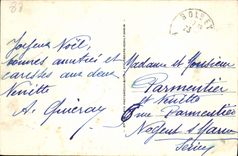 87
SOLRE
Joyeux Noël,
bonnes amitiés et
caresses aux deux
Ninette
A. Quiéray
Madame et Monsieur
Parmentier
et Ninette
Parmentier
Nogent s/ Marne
Seine